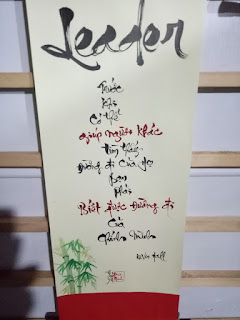 Leader
Trước
khi
Có thể
giúp người khác
tìm thấy
đường đi của họ
Bạn
phải
Biết được đường đi
Của
Chính mình